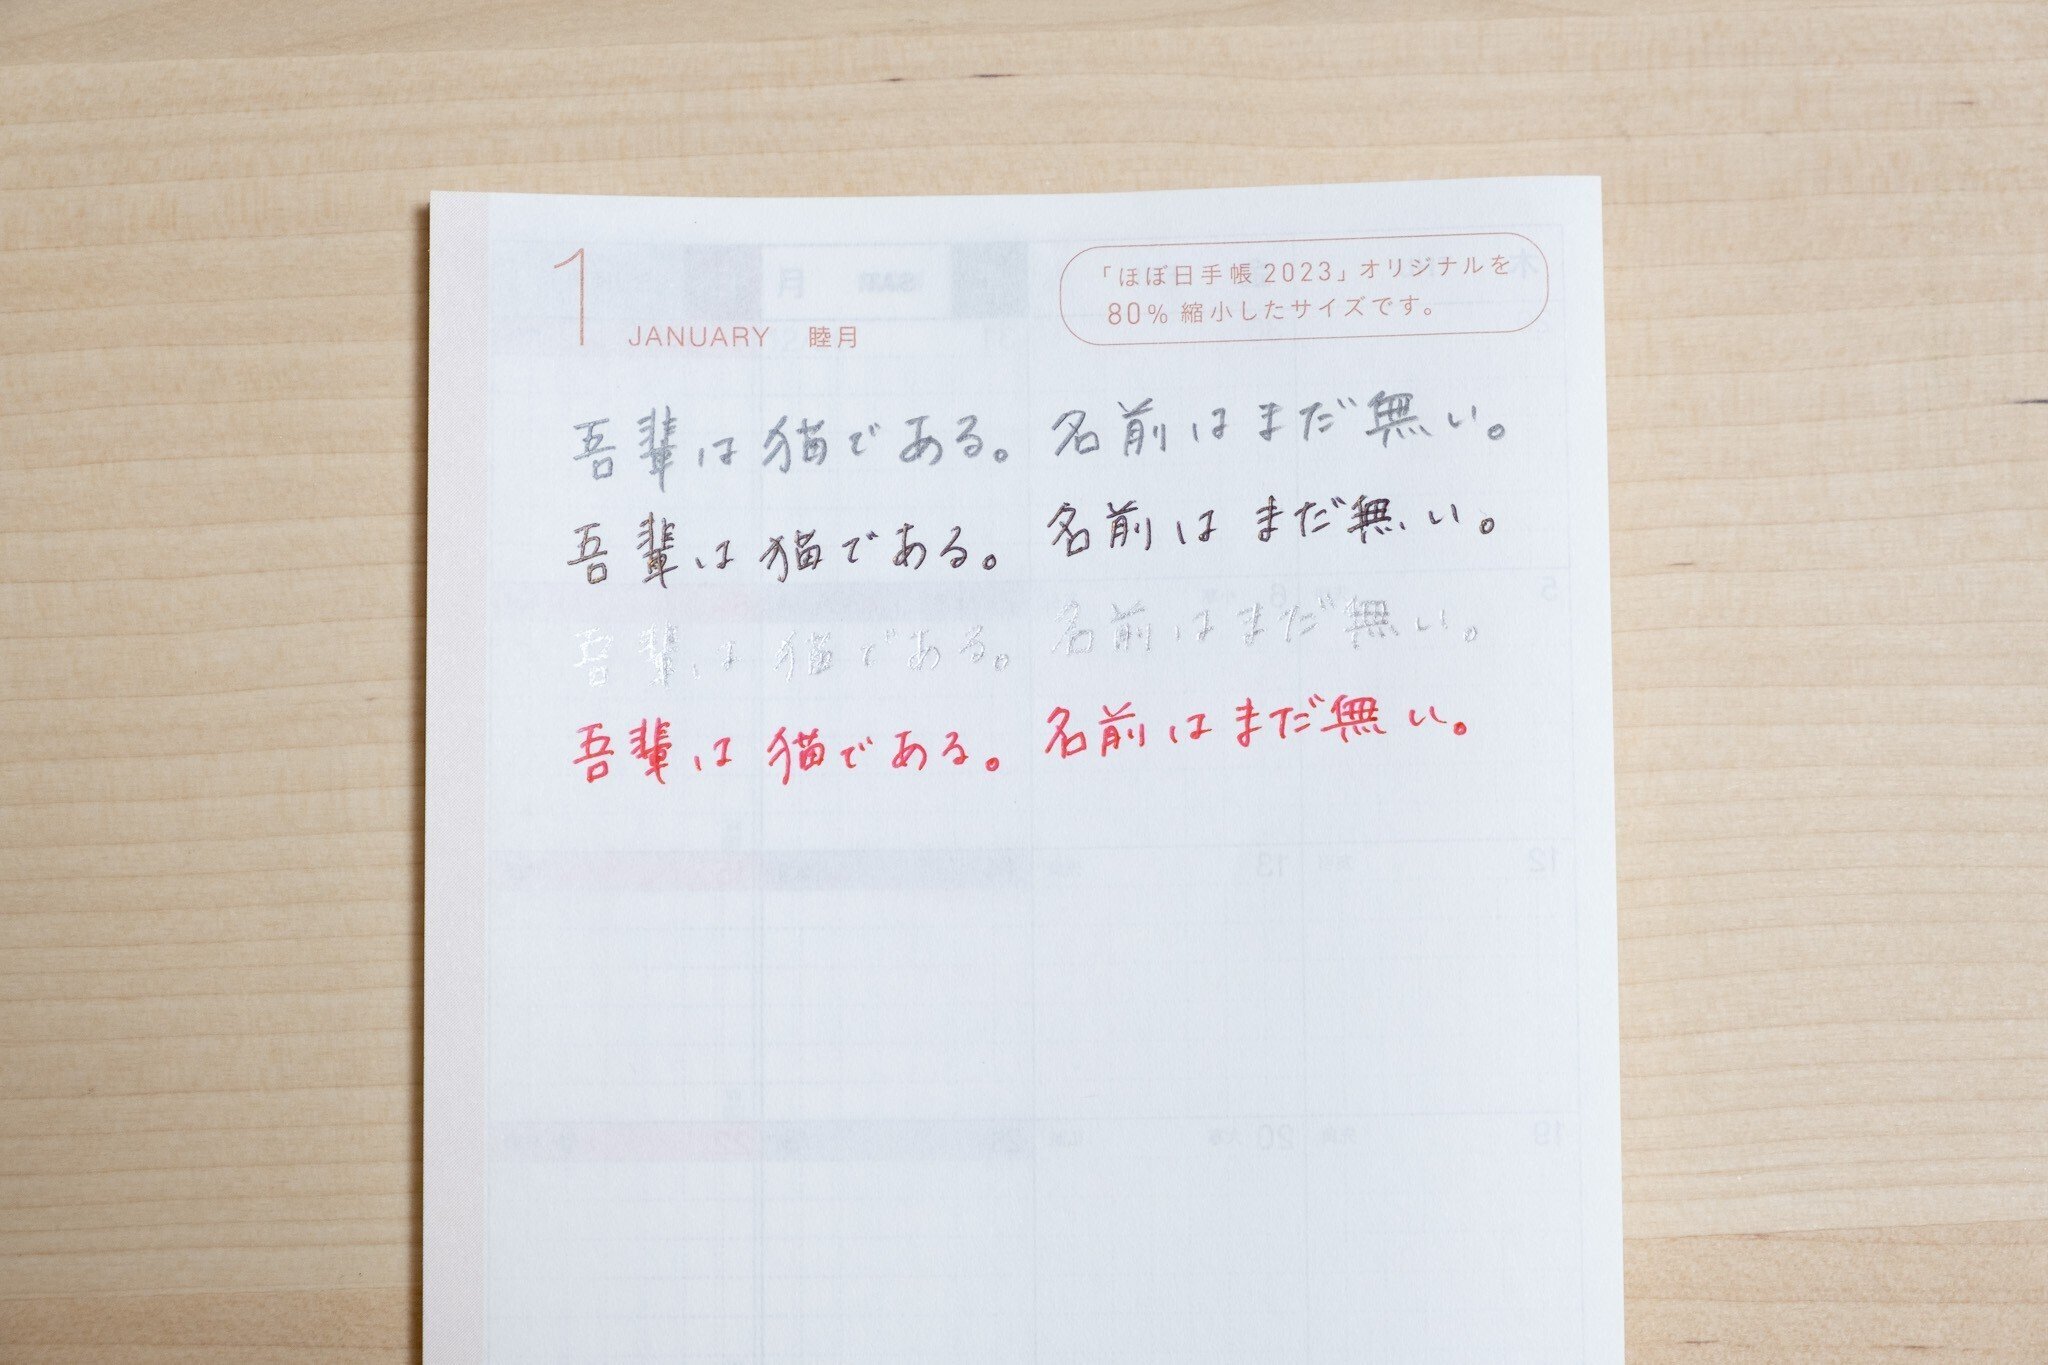 1
JANUARY 睦月
「ほぼ日手帳 2023」オリジナルを
80% 縮小したサイズです。
吾輩は猫である。名前はまだ無い。
吾輩は猫である。名前はまだ無い。
吾輩は猫である。名前はまだ無い。
吾輩は猫である。名前はまだ無い。